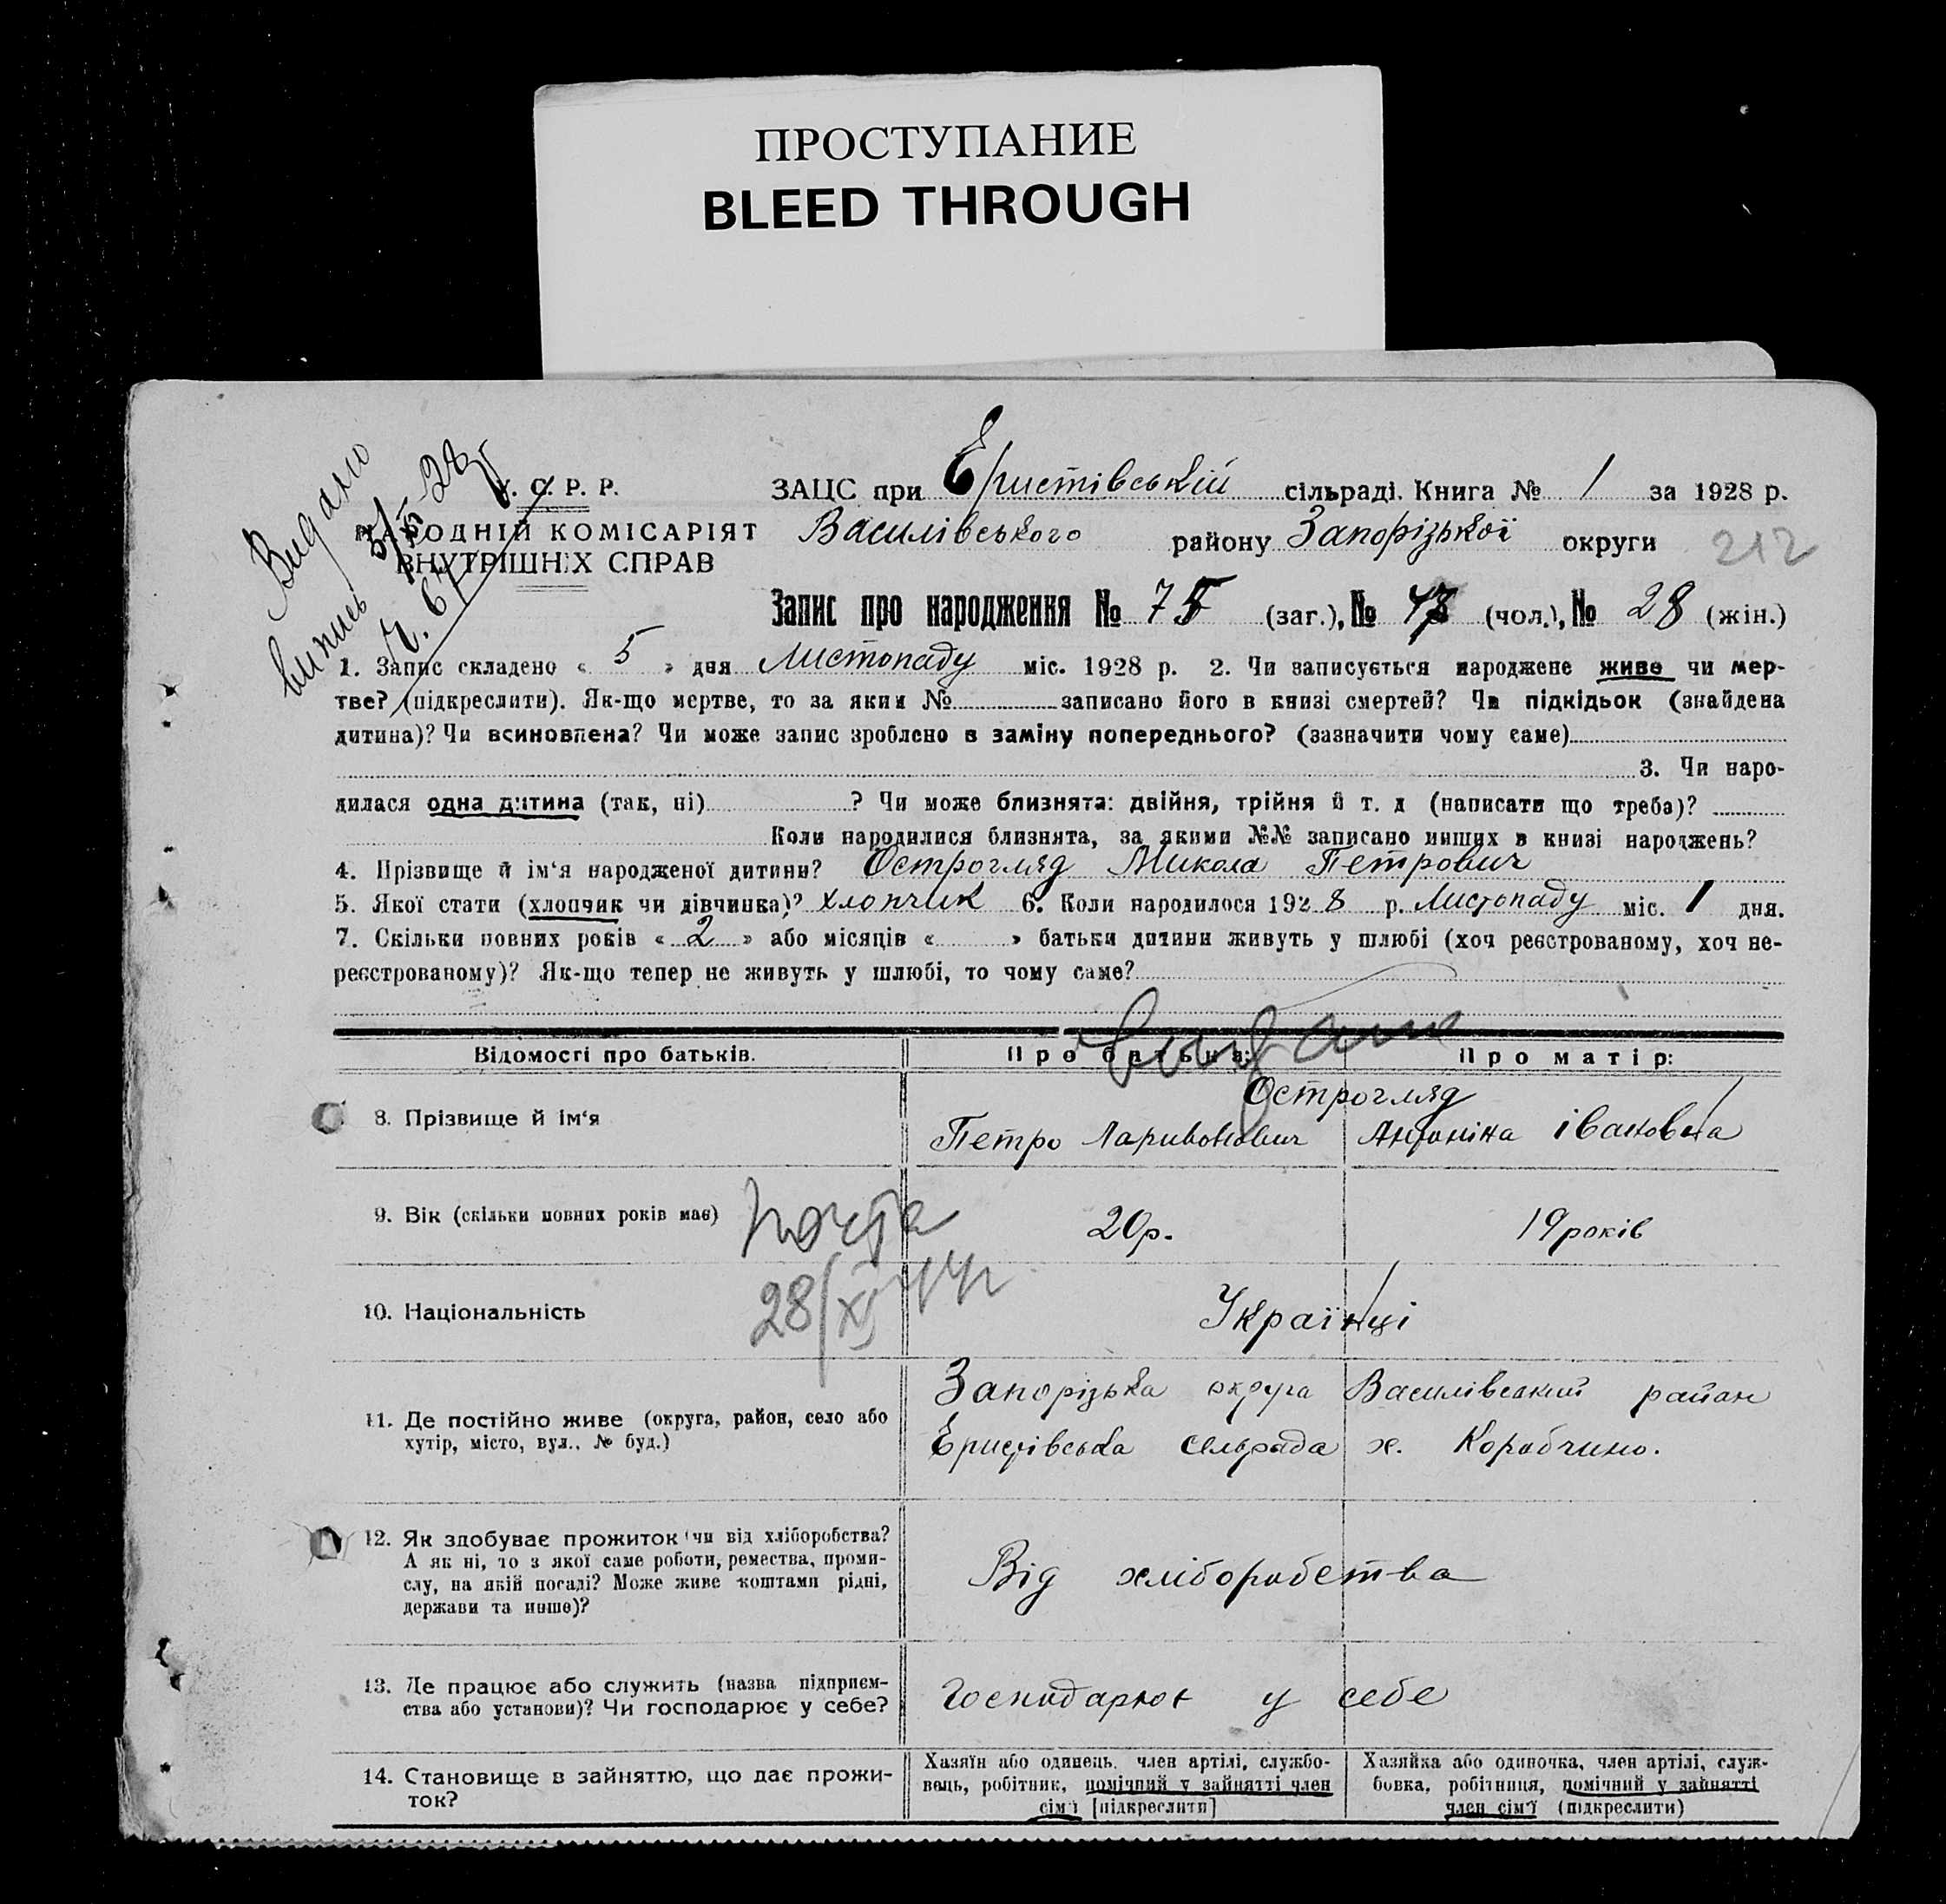 ПРОСТУПАНИЕ
BLEED THROUGH
Видано
випись 5/XI-28р
ч. 67
У. С. Р. Р.
НАРОДНІЙ КОМІСАРІЯТ
ВНУТРІШНІХ СПРАВ
ЗАЦС при Єристівській сільраді. Книга № 1 за 1928 р.
Василівського району Запорізької округи
212
Запис про народження № 75 (заг.), № 47 (чол.), № 28 (жін.)
1. Запис складено « 5 » дня Листопаду міс. 1928 р. 2. Чи записується народжене живе чи мер-
тве? (підкреслити). Як-що мертве, то за яким № записано його в книзі смертей? Чи підкідьок (знайдена
дитина)? Чи всиновлена? Чи може запис зроблено в заміну попереднього? (зазначити чому саме)
3. Чи наро-
дилася одна дитина (так, ні) ? Чи може близнята: двійня, трійня й т. д (написати що треба)?
Коли народилися близнята, за якими №№ записано инших в книзі народжень?
4. Прізвище й ім'я народженої дитини? Острогляд Микола Петрович
5. Якої стати (хлопчик чи дівчинка)? хлопчик 6. Коли народилося 1928 р. Листопаду міс. 1 дня.
7. Скільки повних років « 2 » або місяців « » батьки дитини живуть у шлюбі (хоч реєстрованому, хоч не-
реєстрованому)? Як-що тепер не живуть у шлюбі, то чому саме?
Відомості про батьків. Про батька: Про матір:
Острогляд
8. Прізвище й ім'я Петро Ларивонович Антоніна Івановна
9. Вік (скільки повних років має) 20р. 19 років
почта
28/XI 44г
10. Національність Українці
11. Де постійно живе (округа, район, село або
хутір, місто, вул., № буд.)
Запорізька округа Василівський район
Єристівська сельрада х. Коробчино.
12. Як здобуває прожиток (чи від хліборобства?
А як ні, то з якої саме роботи, ремества, проми-
слу, на якій посаді? Може живе коштами рідні,
держави та инше)?
Від хліборобства
13. Де працює або служить (назва підприєм-
ства або установи)? Чи господарює у себе?
Господарює у себе
14. Становище в зайняттю, що дає прожи-
ток?
Хазяїн або одинець, член артілі, службо-
вець, робітник, помічний у зайнятті член
сім'ї [підкреслити]
Хазяйка або одиночка, член артілі, служ-
бовка, робітниця, помічний у зайнятті
член сім'ї (підкреслити)